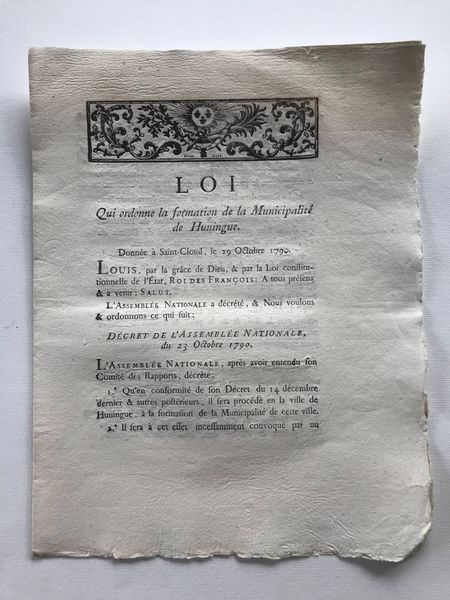 LOI
Qui ordonne la formation de la Municipalité
de Huningue.
Donnée à Saint-Cloud, le 29 Octobre 1790.
LOUIS, par la grâce de Dieu, & par la Loi constitu-
tionnelle de l'État, ROI DES FRANÇOIS: A tous présens
& à venir; SALUT.
L'ASSEMBLÉE NATIONALE a décrété, & Nous voulons
& ordonnons ce qui suit:
DÉCRET DE L'ASSEMBLÉE NATIONALE,
du 23 Octobre 1790.
L'ASSEMBLÉE NATIONALE, après avoir entendu son
Comité des Rapports, décrète:
1.° Qu'en conformité de son Décret du 14 décembre
dernier & autres postérieurs, il sera procédé en la ville de
Huningue, à la formation de la Municipalité de cette ville.
2.° Il sera à cet effet incessamment convoqué par un